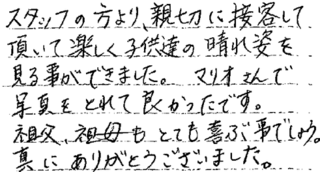 スタッフの方より、親切に接客して
頂いて楽しく子供達の晴れ姿を
見る事ができました。 マリオさんで
写真をとれて良かったです。
祖父、祖母もとても喜ぶ事でしょう。
真にありがとうございました。